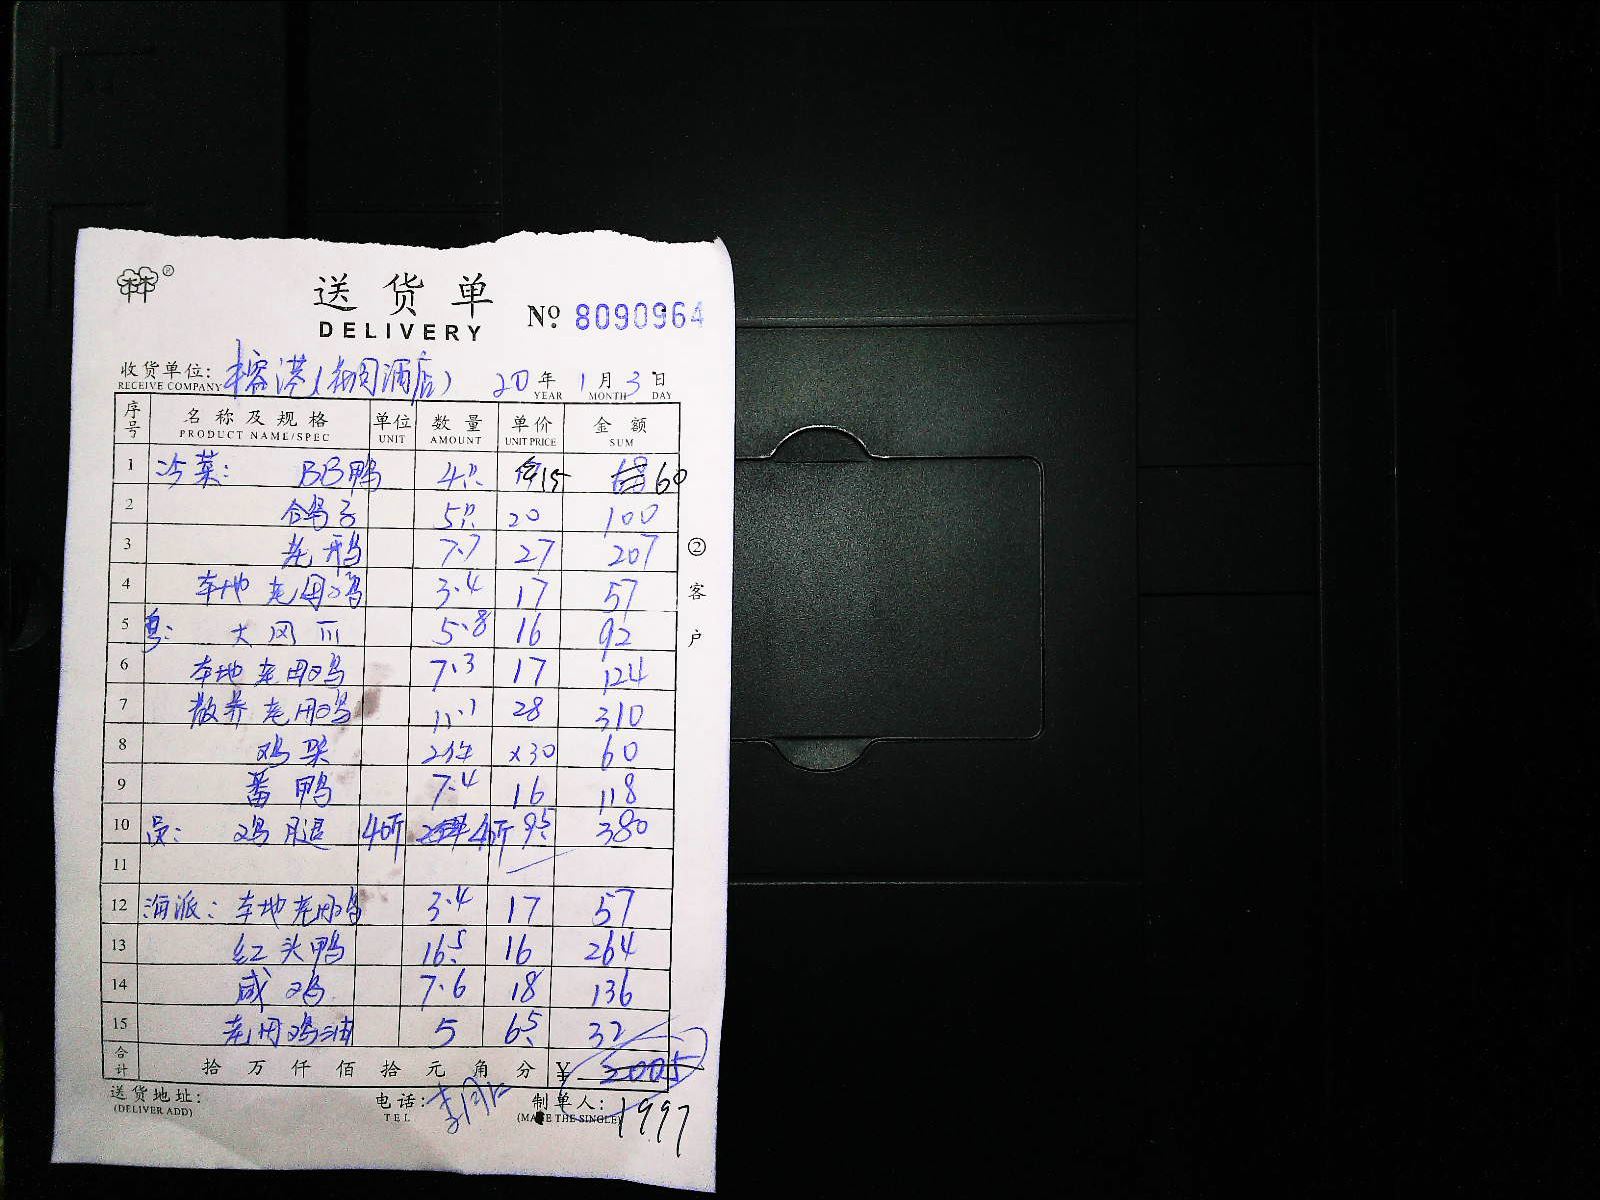 送货单
DELIVERY
No 8090964
收货单位: 榕港(相阅酒店) 20年 1月 3日
RECEIVE COMPANY YEAR MONTH DAY
序号 名称及规格 单位 数量 单价 金额
PRODUCT NAME/SPEC UNIT AMOUNT UNIT PRICE SUM
1 冷菜: BB鸭 4只 15 60
2 鸽子 5只 20 100
3 老鸭 7.7 27 207
4 本地老母鸡 3.4 17 57
5 粤: 大网爪 5.8 16 92
6 本地老母鸡 7.3 17 124
7 散养老母鸡 11.1 28 310
8 鸡架 2件 x30 60
9 番鸭 7.4 16 118
10 员: 鸡腿 40斤 40斤 9.5 380
11
12 海派: 本地老母鸡 3.4 17 57
13 红头鸭 16.5 16 264
14 咸鸡 7.6 18 136
15 老母鸡油 5 6.5 32
合计 拾 万 仟 佰 拾 元 角 分 ¥ 2005
送货地址: 电话: 制单人: 1997
(DELIVER ADD) TEL (MAKE THE SINGLE)
②客户